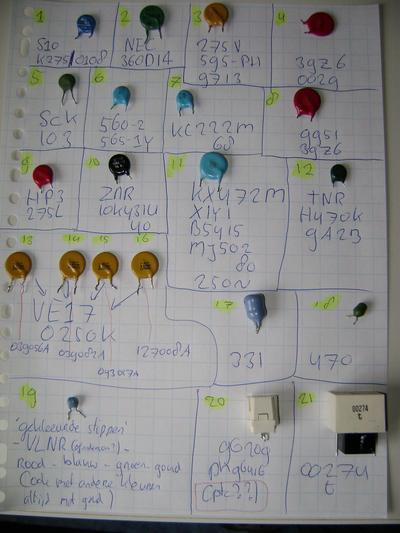 1
S10
K275/0108
2
NEC
360D14
3
275N
595-PH
9713
4
39Z6
002g
5
SCK
103
6
560-2
565-1Y
7
KC222M
68
8
9951
39Z6
9
HP3
275L
10
ZNR
10K431U
40
11
KX472M
X1Y1
B5415
MJ502
80
250N
12
TNR
H470K
9A23
13
14
15
16
VE17
0250K
039056A
039082A
043017A
127008A
17
331
18
470
19
'gekleurde stippen'
- VLNR (afgelezen?) -
Rood - blauw - groen - goud
Code met andere kleuren
altijd met goud)
20
(ptc??)
21
00274
t
00274
t